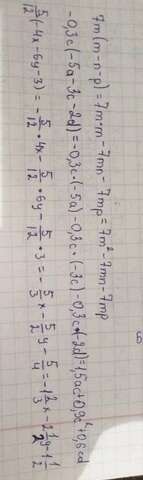 7m(m-n-p)=7m·m-7mn-7mp=7m²-7mn-7mp
-0,3c(-5a-3c-2d)=-0,3c·(-5a)-0,3c·(-3c)-0,3c·(-2d)=1,5ac+0,9c²+0,6cd
5/12(-4x-6y-3)=-5/12·4x-5/12·6y-5/12·3=-5/3x-5/2y-5/4=-1 2/3x-2 1/2y-1 1/2